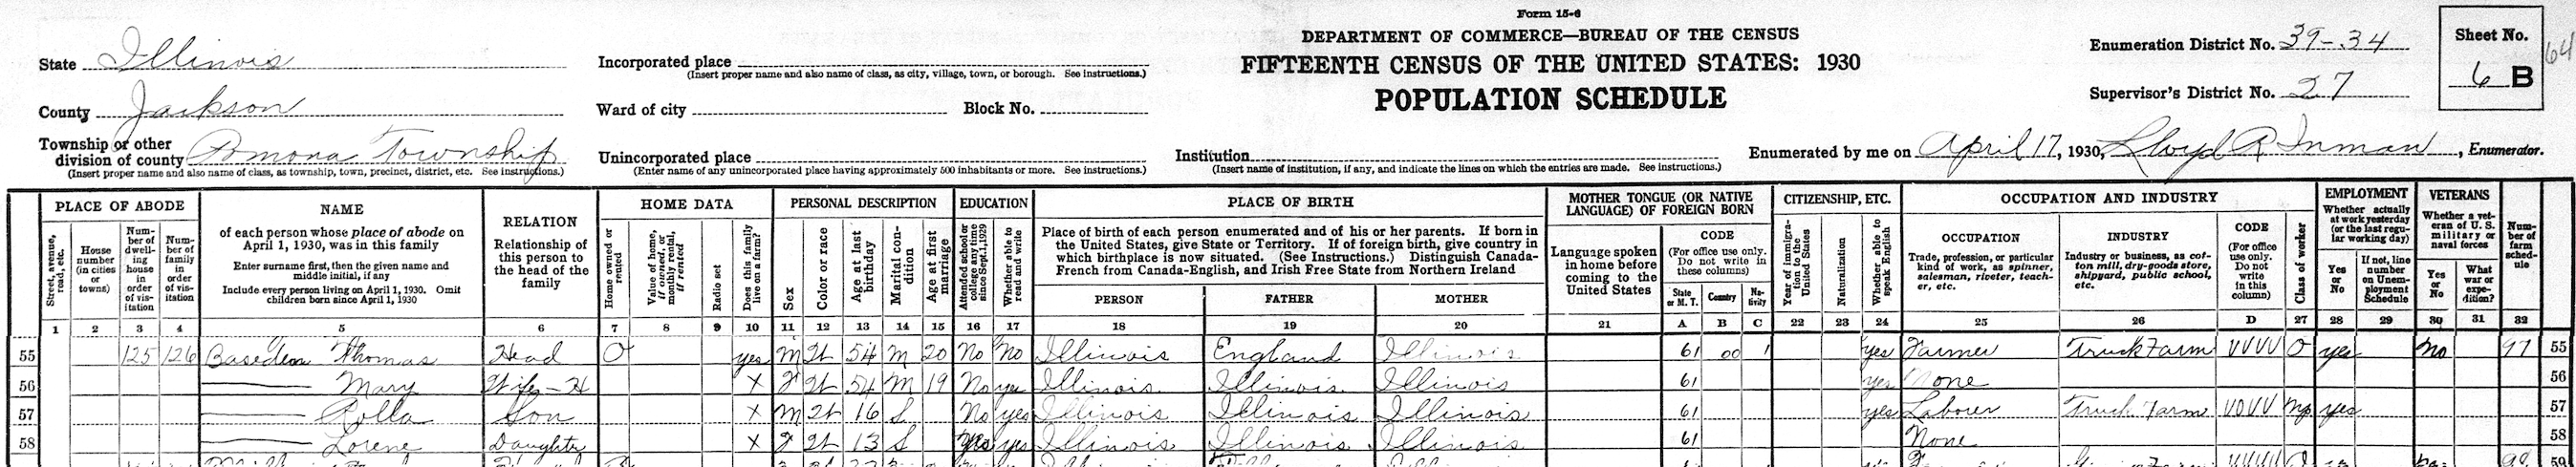 Form 15-6
DEPARTMENT OF COMMERCE—BUREAU OF THE CENSUS
FIFTEENTH CENSUS OF THE UNITED STATES: 1930
POPULATION SCHEDULE
State Illinois
County Jackson
Township or other division of county Pomona Township
(Insert proper name and also name of class, as township, town, precinct, district, etc. See instructions.)
Incorporated place
(Insert proper name and also name of class, as city, village, town, or borough. See instructions.)
Ward of city Block No.
Unincorporated place
(Enter name of any unincorporated place having approximately 500 inhabitants or more. See instructions.)
Institution
(Insert name of institution, if any, and indicate the lines on which the entries are made. See instructions.)
Enumeration District No. 39-34
Supervisor's District No. 27
Sheet No.
6 B
64
Enumerated by me on April 17, 1930, Lloyd R Inman, Enumerator.
PLACE OF ABODE
Street, avenue, road, etc.
House number (in cities or towns)
Number of dwelling house in order of visitation
Number of family in order of visitation
NAME
of each person whose place of abode on April 1, 1930, was in this family
Enter surname first, then the given name and middle initial, if any
Include every person living on April 1, 1930. Omit children born since April 1, 1930
RELATION
Relationship of this person to the head of the family
HOME DATA
Home owned or rented
Value of home, if owned, or monthly rental, if rented
Radio set
Does this family live on a farm?
PERSONAL DESCRIPTION
Sex
Color or race
Age at last birthday
Marital condition
Age at first marriage
EDUCATION
Attended school or college any time since Sept. 1, 1929
Whether able to read and write
PLACE OF BIRTH
Place of birth of each person enumerated and of his or her parents. If born in the United States, give State or Territory. If of foreign birth, give country in which birthplace is now situated. (See Instructions.) Distinguish Canada-French from Canada-English, and Irish Free State from Northern Ireland
PERSON FATHER MOTHER
MOTHER TONGUE (OR NATIVE LANGUAGE) OF FOREIGN BORN
Language spoken in home before coming to the United States
CODE
(For office use only. Do not write in these columns)
State or M. T. Country Nativity
CITIZENSHIP, ETC.
Year of immigration to the United States
Naturalization
Whether able to speak English
OCCUPATION AND INDUSTRY
OCCUPATION
Trade, profession, or particular kind of work, as spinner, salesman, riveter, teacher, etc.
INDUSTRY
Industry or business, as cotton mill, dry-goods store, shipyard, public school, etc.
CODE
(For office use only. Do not write in this column)
Class of worker
EMPLOYMENT
Whether actually at work yesterday (or the last regular working day)
Yes or No
If not, line number on Unemployment Schedule
VETERANS
Whether a veteran of U. S. military or naval forces
Yes or No
What war or expedition?
Number of farm schedule
1 2 3 4 5 6 7 8 9 10 11 12 13 14 15 16 17 18 19 20 21 A B C 22 23 24 25 26 D 27 28 29 30 31 32
55 125 126 Basedon Thomas Head O yes M W 54 M 20 No No Illinois England Illinois 61 00 1 yes Farmer Truck Farm VVVV O yes no 97 55
56 Mary Wife-H X F W 54 M 19 No yes Illinois Illinois Illinois 61 yes None 56
57 Rolla Son X M W 16 S No yes Illinois Illinois Illinois 61 yes Laborer Truck Farm VOVV NP yes 57
58 Lorene Daughter X F W 13 S yes yes Illinois Illinois Illinois 61 None 58